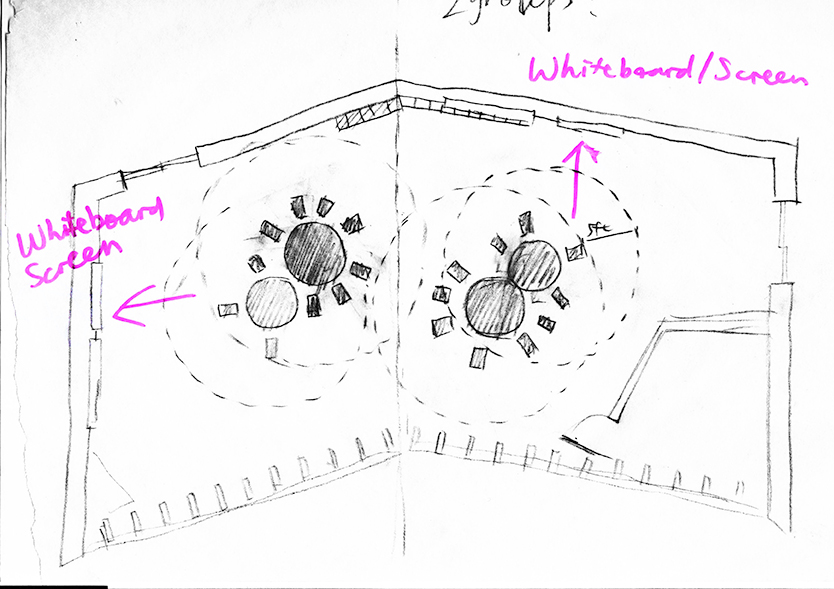 2 groups.
Whiteboard/Screen
Whiteboard
Screen
5ft